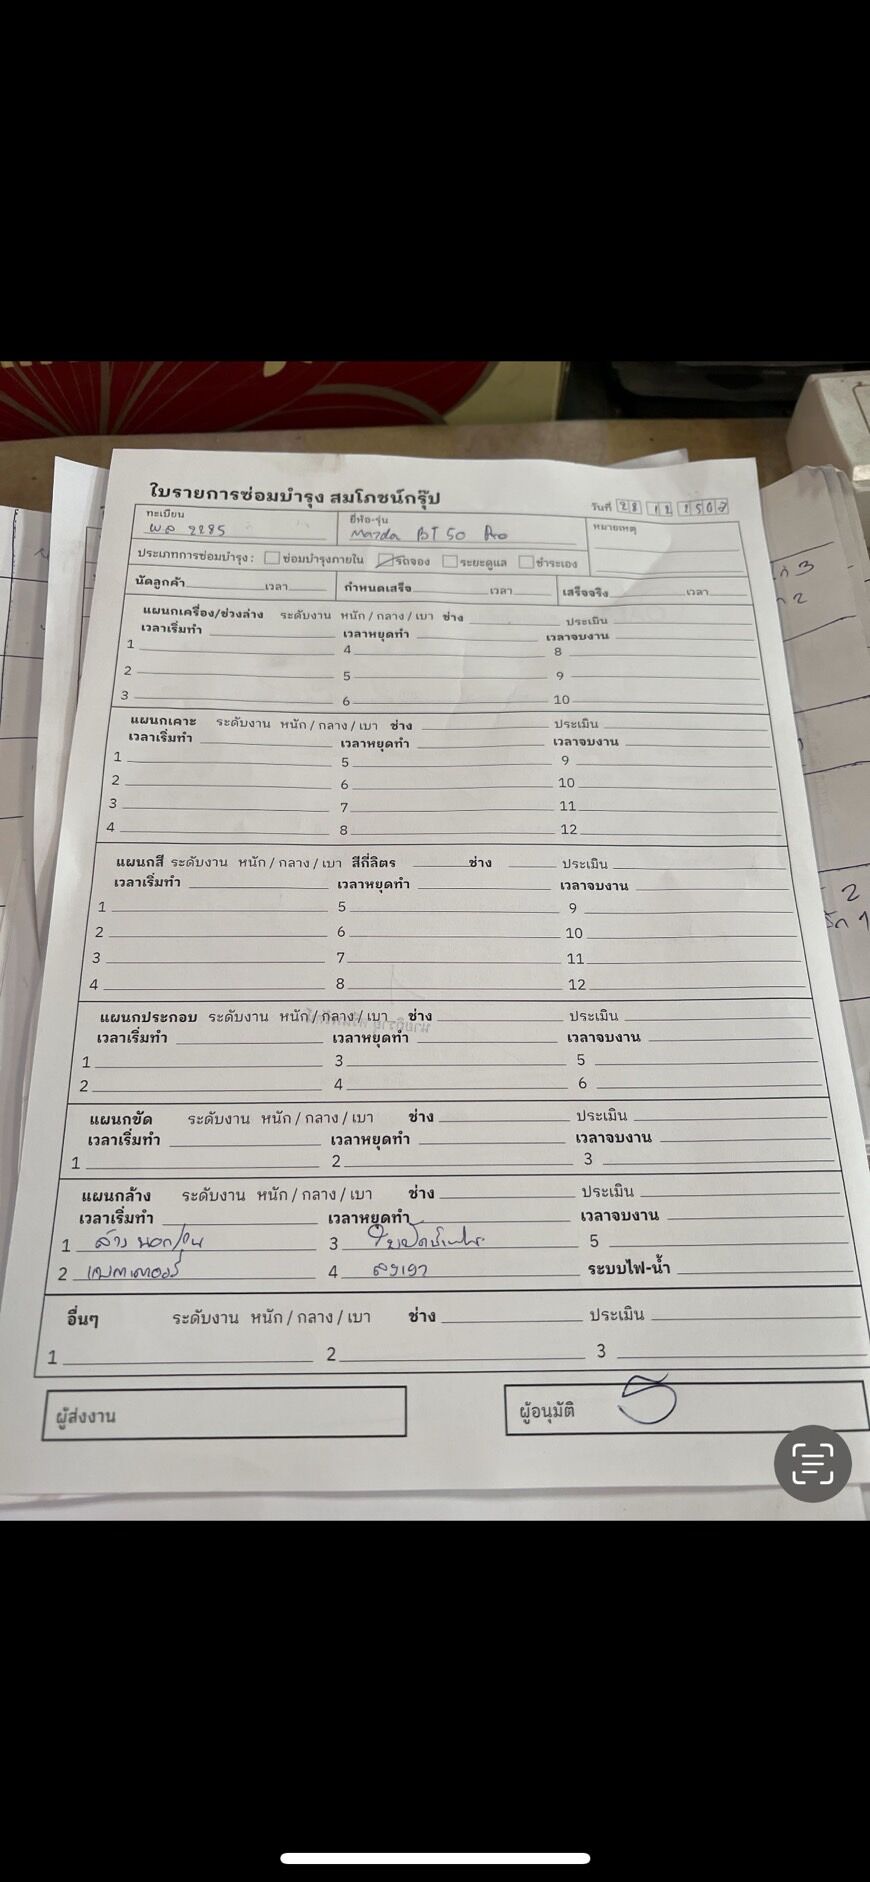 ใบรายการซ่อมบำรุง สมโภชน์กรุ๊ป
วันที่ 28 12 250
ทะเบียน ผล 2285 ยี่ห้อ-รุ่น Mazda BT 50 Pro หมายเหตุ
ประเภทการซ่อมบำรุง : ซ่อมบำรุงภายใน รถจอง ระยะดูแล ชำระเอง
นัดลูกค้า เวลา กำหนดเสร็จ เวลา เสร็จจริง เวลา
แผนกเครื่อง/ช่วงล่าง ระดับงาน หนัก / กลาง / เบา ช่าง ประเมิน
เวลาเริ่มทำ เวลาหยุดทำ เวลาจบงาน
1 4 8
2 5 9
3 6 10
แผนกเคาะ ระดับงาน หนัก / กลาง / เบา ช่าง ประเมิน
เวลาเริ่มทำ เวลาหยุดทำ เวลาจบงาน
1 5 9
2 6 10
3 7 11
4 8 12
แผนกสี ระดับงาน หนัก / กลาง / เบา สีกี่ลิตร ช่าง ประเมิน
เวลาเริ่มทำ เวลาหยุดทำ เวลาจบงาน
1 5 9
2 6 10
3 7 11
4 8 12
แผนกประกอบ ระดับงาน หนัก / กลาง / เบา ช่าง ประเมิน
เวลาเริ่มทำ เวลาหยุดทำ เวลาจบงาน
1 3 5
2 4 6
แผนกขัด ระดับงาน หนัก / กลาง / เบา ช่าง ประเมิน
เวลาเริ่มทำ เวลาหยุดทำ เวลาจบงาน
1 2 3
แผนกล้าง ระดับงาน หนัก / กลาง / เบา ช่าง ประเมิน
เวลาเริ่มทำ เวลาหยุดทำ เวลาจบงาน
1 ล้าง นอก/ใน 3 5
2 4 ลงเงา ระบบไฟ-น้ำ
อื่นๆ ระดับงาน หนัก / กลาง / เบา ช่าง ประเมิน
1 2 3
ผู้ส่งงาน ผู้อนุมัติ